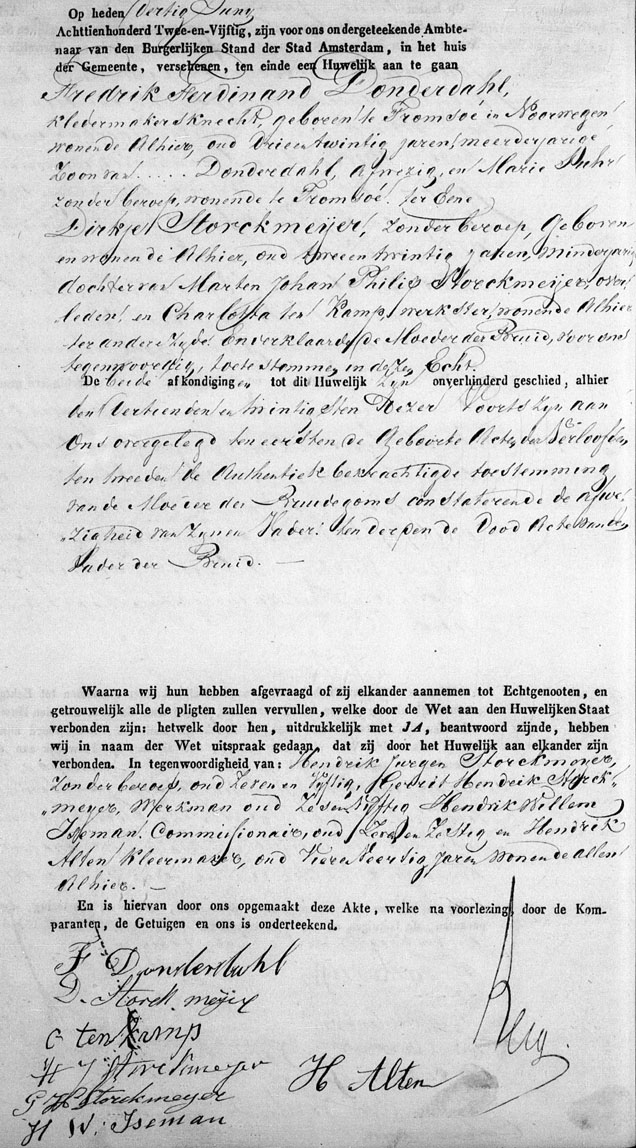 Op heden dertig Juny
Achttienhonderd Twee-en-Vijftig, zijn voor ons ondergeteekende Ambte-
naar van den Burgerlijken Stand der Stad Amsterdam, in het huis
der Gemeente, verschenen, ten einde een Huwelijk aan te gaan
Fredrik Ferdinand Donderdahl,
kledermakersknecht, geboren te Fromsoé in Noorwegen
wonende Alhier, oud drieentwintig jaren, meerderjarige
Zoon van ..... Donderdahl, afwezig, en Marie
zonder beroep, wonende te Fromsoé. ter Eene
Dirkjen Storckmeijer, zonder beroep, Geboren
en wonende Alhier, oud tweeentwintig jaren, minderjarige
dochter van Marten Johan Philip Storckmeijer, over
leden en Charlotta ten Kamp, werkster, wonende Alhier
ter andere zijde. En verklaarde de Moeder der Bruid, voor ons
tegenwoordig, toetestemmen in deze Echt.
De beide afkondigingen tot dit Huwelijk zijn onverhinderd geschied, alhier
den dertienden en twintigsten dezer Voorts zijn aan
ons overgelegd ten eersten de Geboorte Acten der Verloofden
ten tweeden de Authentiek bekrachtigde toestemming
van de Moeder des Bruidegoms constaterende de afwe
zigheid van zijnen Vader. ten derden de Dood Acte van den
Vader der Bruid. —
Waarna wij hun hebben afgevraagd of zij elkander aannemen tot Echtgenooten, en
getrouwelijk alle de pligten zullen vervullen, welke door de Wet aan den Huwelijken Staat
verbonden zijn: hetwelk door hen, uitdrukkelijk met JA, beantwoord zijnde, hebben
wij in naam der Wet uitspraak gedaan, dat zij door het Huwelijk aan elkander zijn
verbonden. In tegenwoordigheid van: Hendrik Jurgen Storckmeyer,
Zonder beroep, oud Zeven en Vijftig, Gerrit Hendrik Storck-
meyer, Werkman oud Zes en Vijftig Hendrik Willem
Iseman, Commissionair, oud en Zestig en Hendrik
Alten Kleermaker, oud Vier en Veertig Jaren wonende allen
Alhier. —
En is hiervan door ons opgemaakt deze Akte, welke na voorlezing, door de Kom-
paranten, de Getuigen en ons is onderteekend.
F Donderdahl
D. Storckmeijer
C ten Kamp
H J Storckmeyer
G H Storckmeyer
H Alten
H W: Iseman